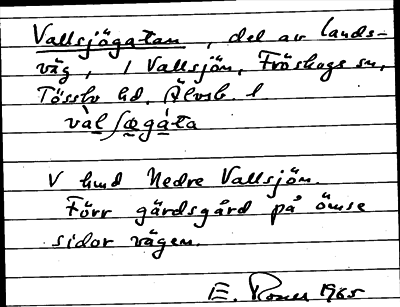 Vallsjögatan, del av lands-
väg, i Vallsjön, Fröskogs sn,
Tössbo hd, Älvsb. l.
väl ʃøgáta
V hmd Nedre Vallsjön.
Förr gärdsgård på ömse
sidor vägen.
E. 1965